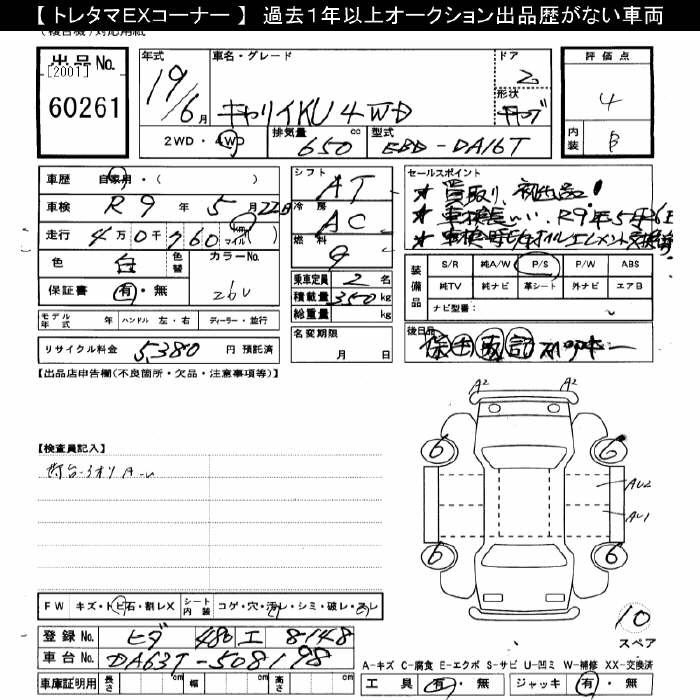 【 トレタマEXコーナー 】 過去1年以上オークション出品歴がない車両
出品No.
[2001]
60261
年式
19/6月
車名・グレード
キャリイKU 4WD
ドア
2
形状
評価点
4
内装
B
2WD・4WD
排気量
650 cc
型式
EBD-DA16T
車歴 自家用・( )
車検 R9年 5月
走行 4万0千760 km マイル
色 白 色替
カラーNo.
26U
保証書 有・無
モデル年式 年 ハンドル 左・右 ディーラー・並行
リサイクル料金 5,380 円 預託済
シフト AT
冷房 AC
燃料
乗車定員 2 名
積載量 350 kg
総重量 kg
名変期限
月 日
セールスポイント
★ 買取り、初出品!
装備品
S/R 純A/W P/S P/W ABS
純TV 純ナビ 革シート 外ナビ エアB
ナビ型番:
後日品
保 手 取 記 スペアキー
【出品店申告欄(不良箇所・欠品・注意事項等)】
【検査員記入】
A2 A2
6 6
AU2
AU1
6 6
10
スペア
FW キズ・トビ石・割レX シート内装 コゲ・穴・汚レ・シミ・破レ・スレ
登録No. ヒダ 480 エ 8148
車台No. DA63T-508198
車庫証明用 長さ cm 幅 cm 高さ cm
A-キズ C-腐食 E-エクボ S-サビ U-凹ミ W-補修 XX-交換済
工具 有・無 ジャッキ 有・無